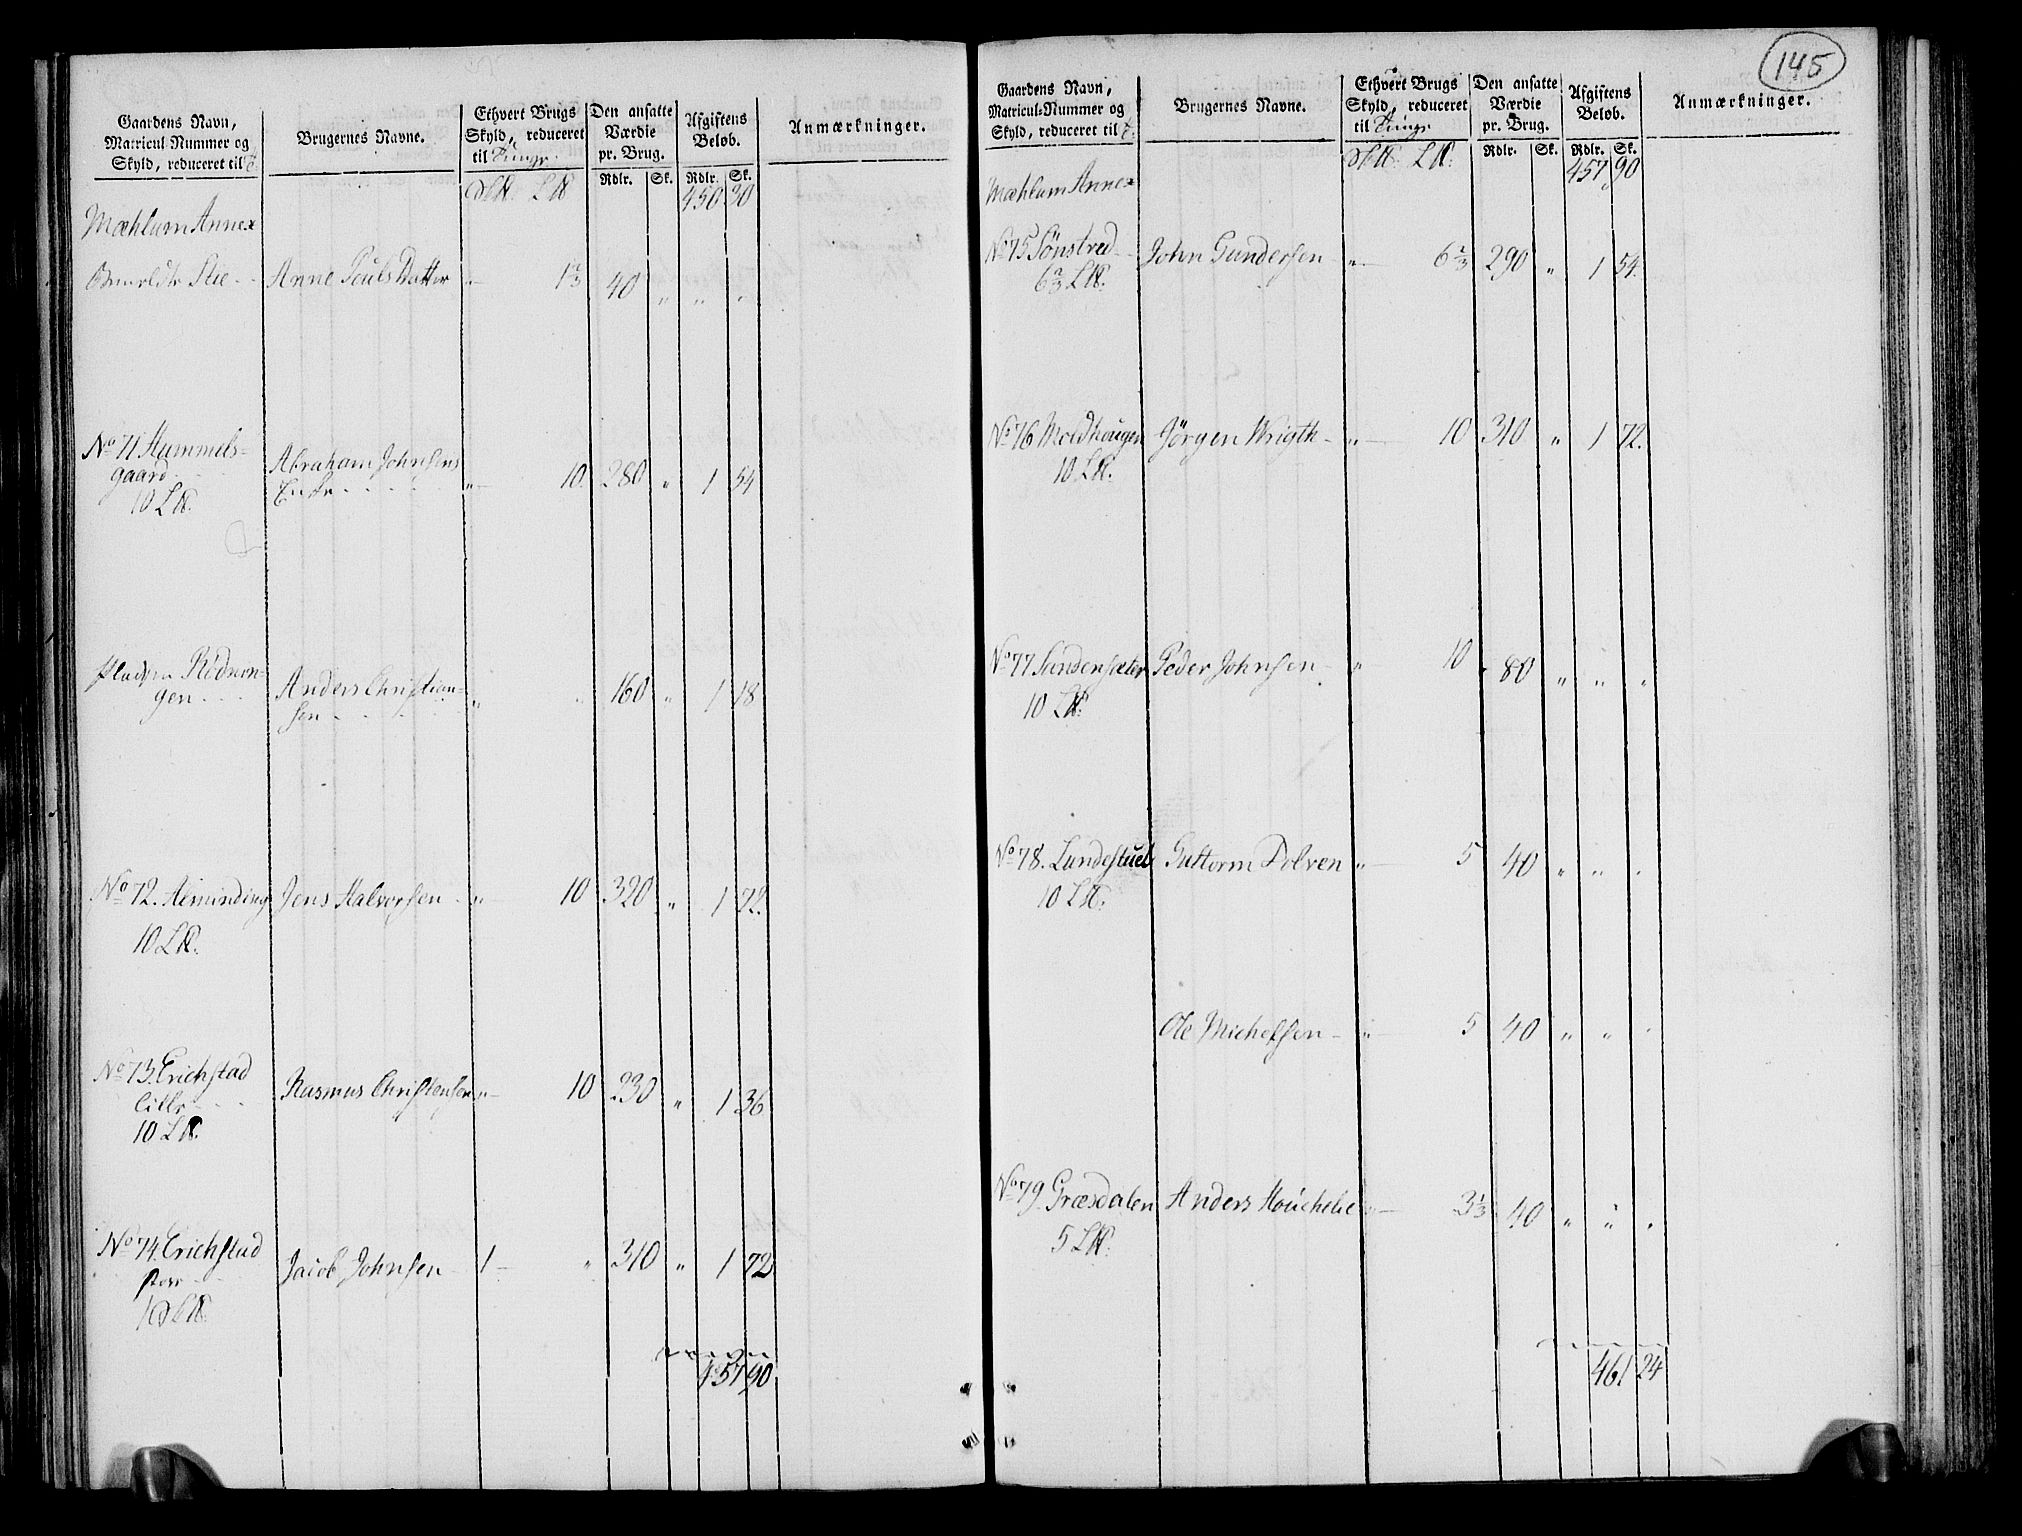 Gaardens Navn,
Matricul-Nummer og
Skyld, reduceret til
Brugernes Navne.
Ethvert Brugs
Skyld, reduceret
til Tunge
Den ansatte
Værdie
pr. Brug.
Afgiftens
Beløb.
Anmærkninger.
Rdlr. Sk. Rdlr. Sk.
450 30
Mæhlum Annex
Stie Anne Pouls Datter " 1 2/3 40 " " "
No 71 Hammels-
gaard
10 L℔.
Abraham Johnsens
Enke " 10. 280 " 1 54
Pladsen Rödnin-
gen
Anders Christian-
sen " " 160 " 1 18
No 72. Alminding Jens Halvorsen " 10 320 " 1 72.
10 L℔.
No 73. Erichstad
lille
10 L℔.
Rasmus Christensen " 10 230 " 1 36
No 74. Erichstad
store
1 S℔.
Jacob Johnsen 1 " 310 " 1 72
457 90
145
Gaardens Navn,
Matricul-Nummer og
Skyld, reduceret til
Brugernes Navne.
Ethvert Brugs
Skyld, reduceret
til Tunge
Den ansatte
Værdie
pr. Brug.
Afgiftens
Beløb.
Anmærkninger.
Rdlr. Sk. Rdlr. Sk.
457 90
Mæhlum Annex
No 75 Sönstred John Gundersen " 6 2/3 290 " 1 54.
6 2/3 L℔.
No 76 Moldhougen Jörgen Wrigth " 10 310 " 1 72.
10 L℔.
No 77 Sandersæter Peder Johnsen " 10 80 " " "
10 L℔.
No 78. Lundestuel Guttorm Dolven " 5 40 " " "
10 L℔.
Ole Michelsen " 5 40 " " "
No 79. Græsdalen Anders Houchelie " 3 1/3 40 " " "
5 L℔.
461 24